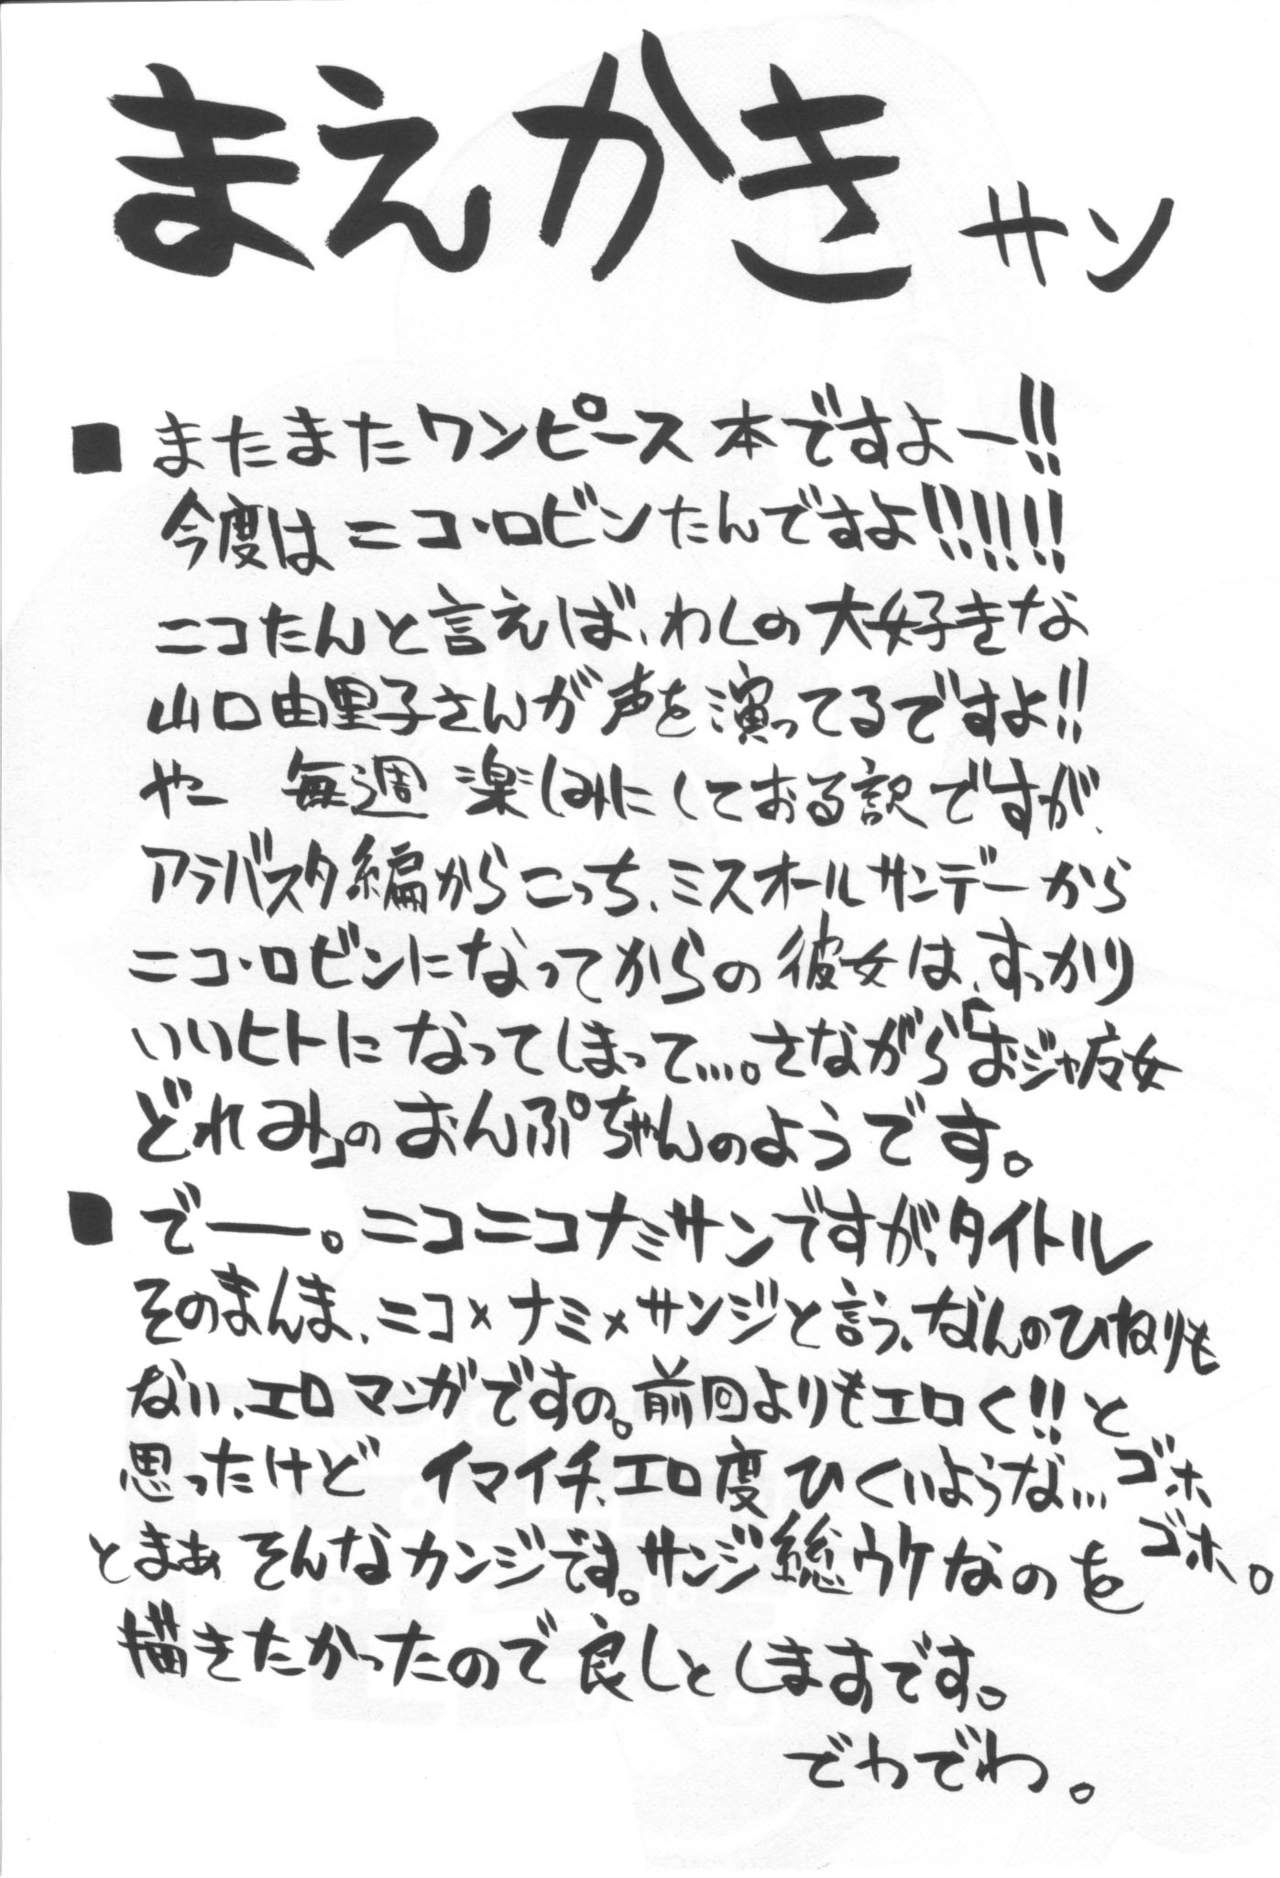 まえかき サン
■またまたワンピース本ですよー!!
今度はニコ・ロビンたんですよ!!!!!!
ニコたんと言えば、わしの大好きな
山口由里子さんが声を演ってるですよ!!
やー 毎週楽しみにしておる訳ですが、
アラバスタ編からこっち、ミスオールサンデーから
ニコ・ロビンになってからの彼女は、すっかり
いいヒトになってしまって…。さながら「おジャ魔女
どれみ」のおんぷちゃんのようです。
■でー。ニコニコナミサンですが、タイトル
そのまんま、ニコ×ナミ×サンジと言う、なんのひねりも
ない、エロマンガですの。前回よりもエロく!!と
思ったけど イマイチ、エロ度ひくいような… ゴホ
ゴホ。
とまあ そんなカンジです。サンジ総ウケなのを
描きたかったので良しとしますです。
でわでわ。